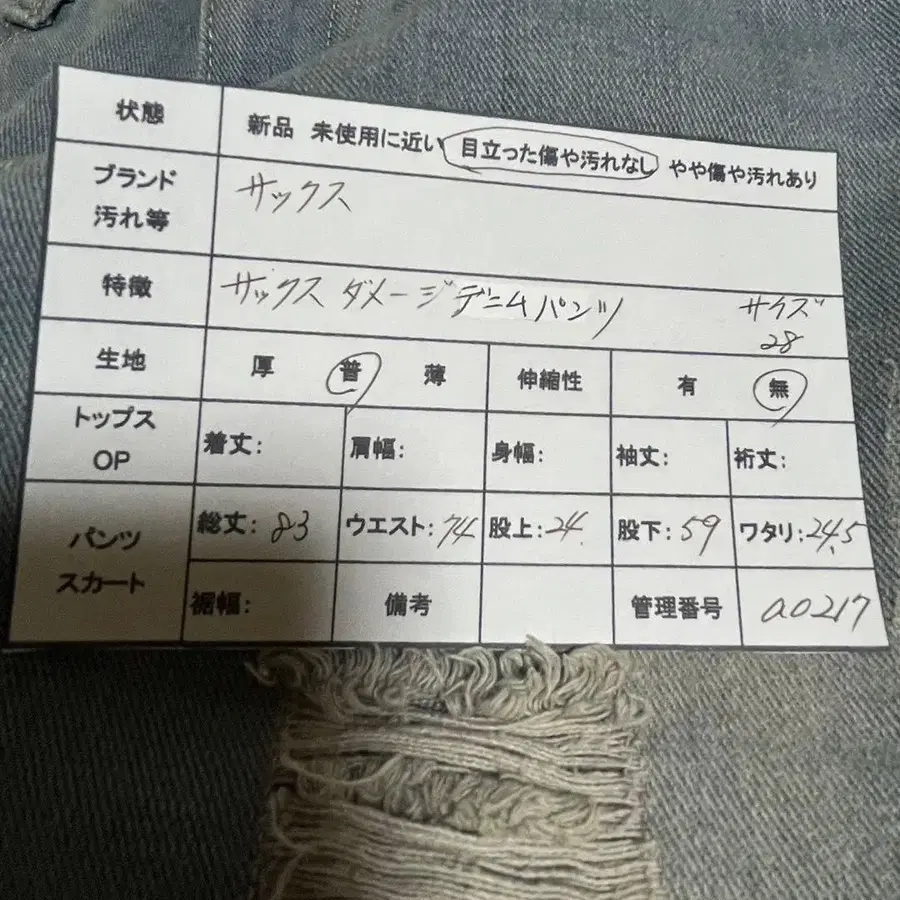 状態 新品 未使用に近い 目立った傷や汚れなし やや傷や汚れあり
ブランド サックス
汚れ等
特徴 サックス ダメージデニムパンツ サイズ
28
生地 厚 普 薄 伸縮性 有 無
トップス
OP 着丈: 肩幅: 身幅: 袖丈: 裄丈:
パンツ
スカート
総丈: 83 ウエスト: 74 股上: 24. 股下: 59 ワタリ: 24.5
裾幅: 備考 管理番号 a0217